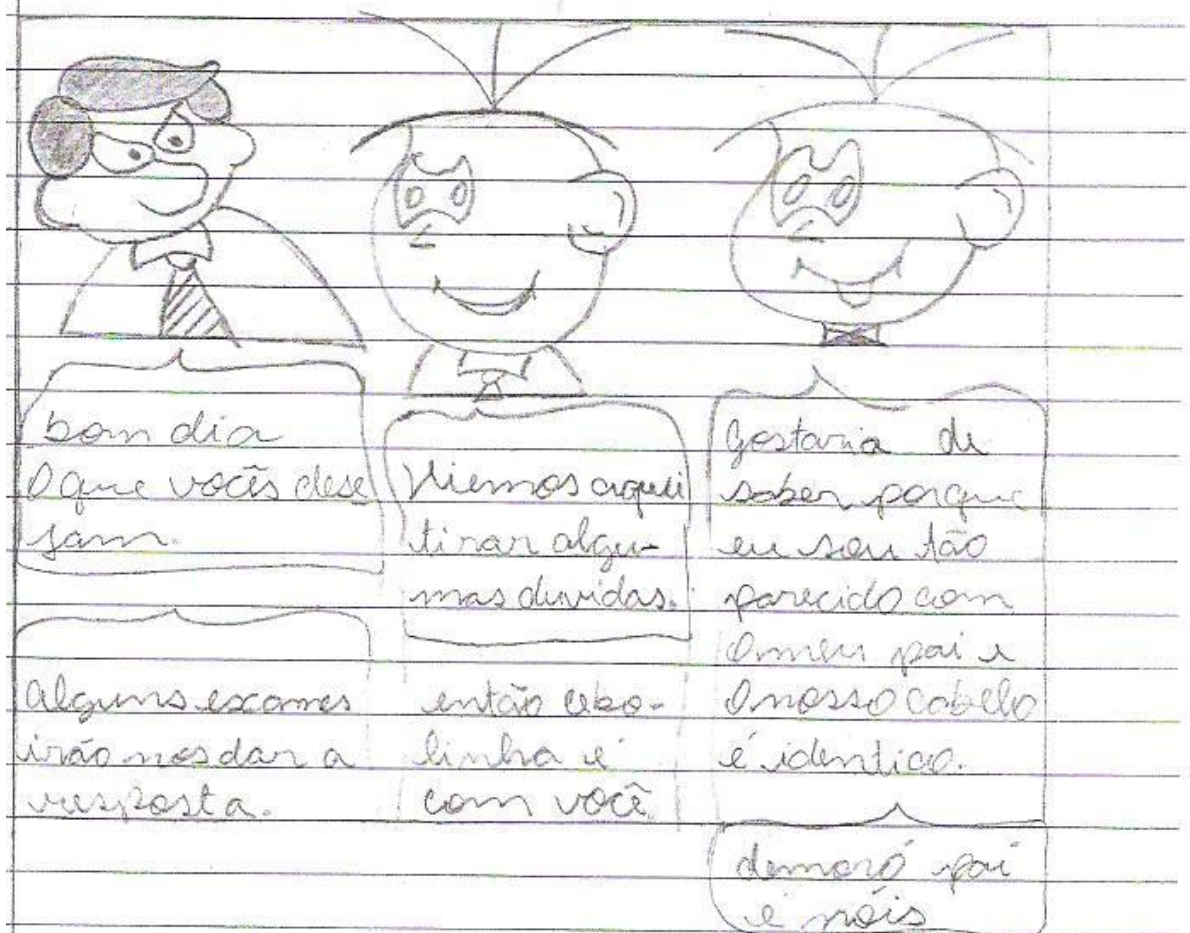 bom dia
O que vocês dese
jam.
Viemos aqui
tirar algu-
mas duvidas.
Gostaria de
saber porque
eu sou tão
parecido com
o meu pai e
o nosso cabelo
é identico.
Alguns exames
irão nos dar a
resposta.
então cebo-
linha é
com você
demoró pai
é nóis